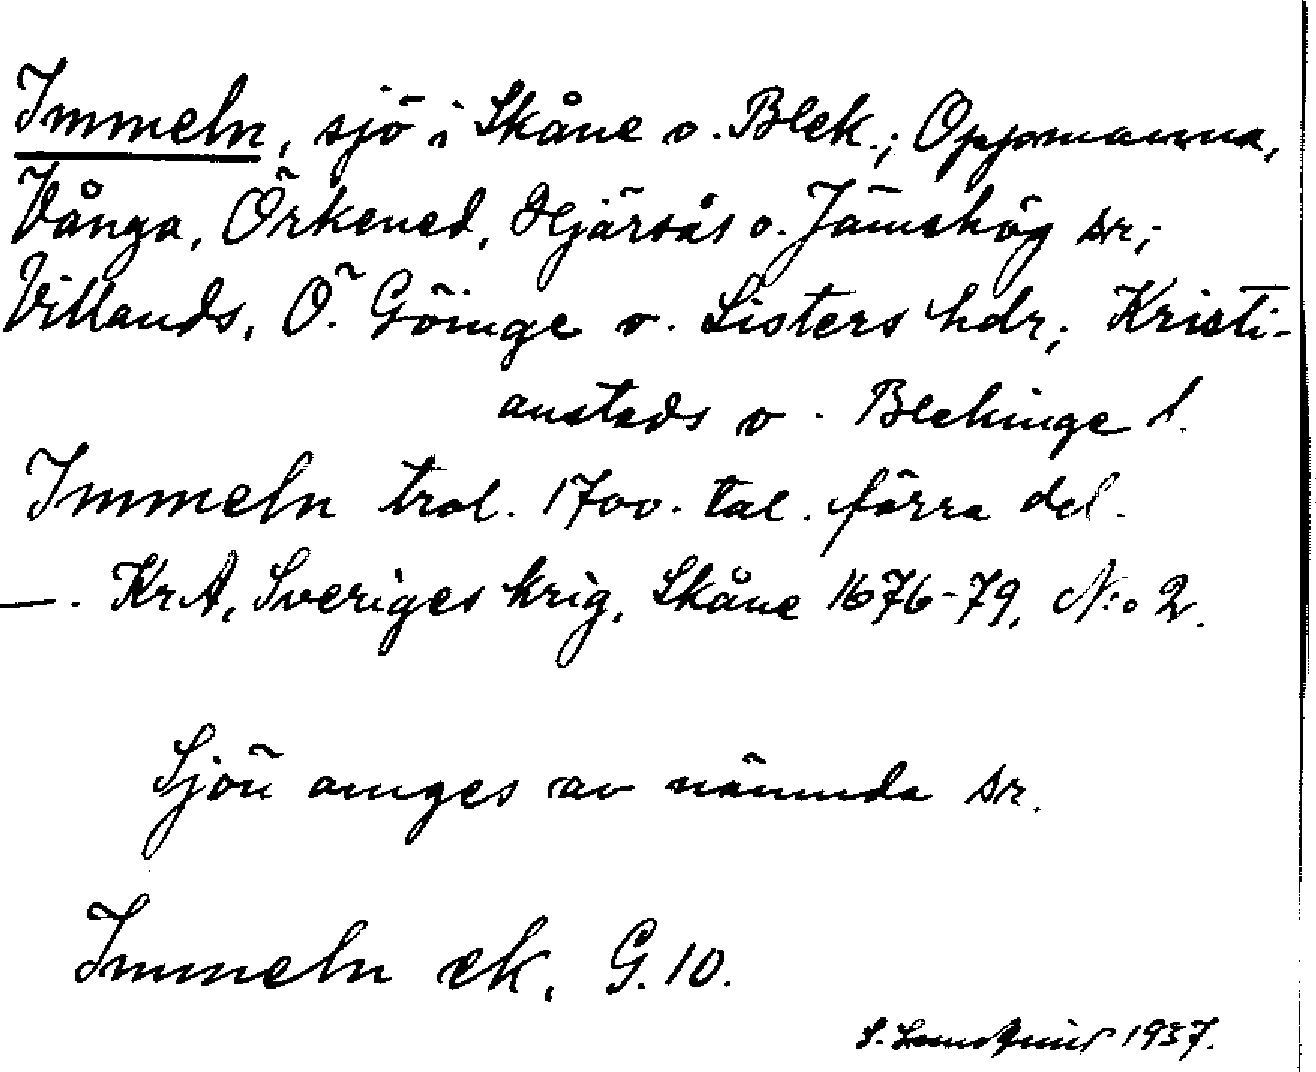 Immeln, sjö i Skåne o. Blek.; Oppmanna,
Vånga, Örkened, Hjärsås o. Jämshög sr;
Villands, Ö. Göinge o. Listers hdr; Kristi-
anstads o. Blekinge l.
Immeln trol. 1700-tal. förra del.
—. KrA, Sveriges krig, Skåne 1676-79, N:o 2.
Sjön omges av nämnda sr.
Immeln ek. G.10.
S. 1937.